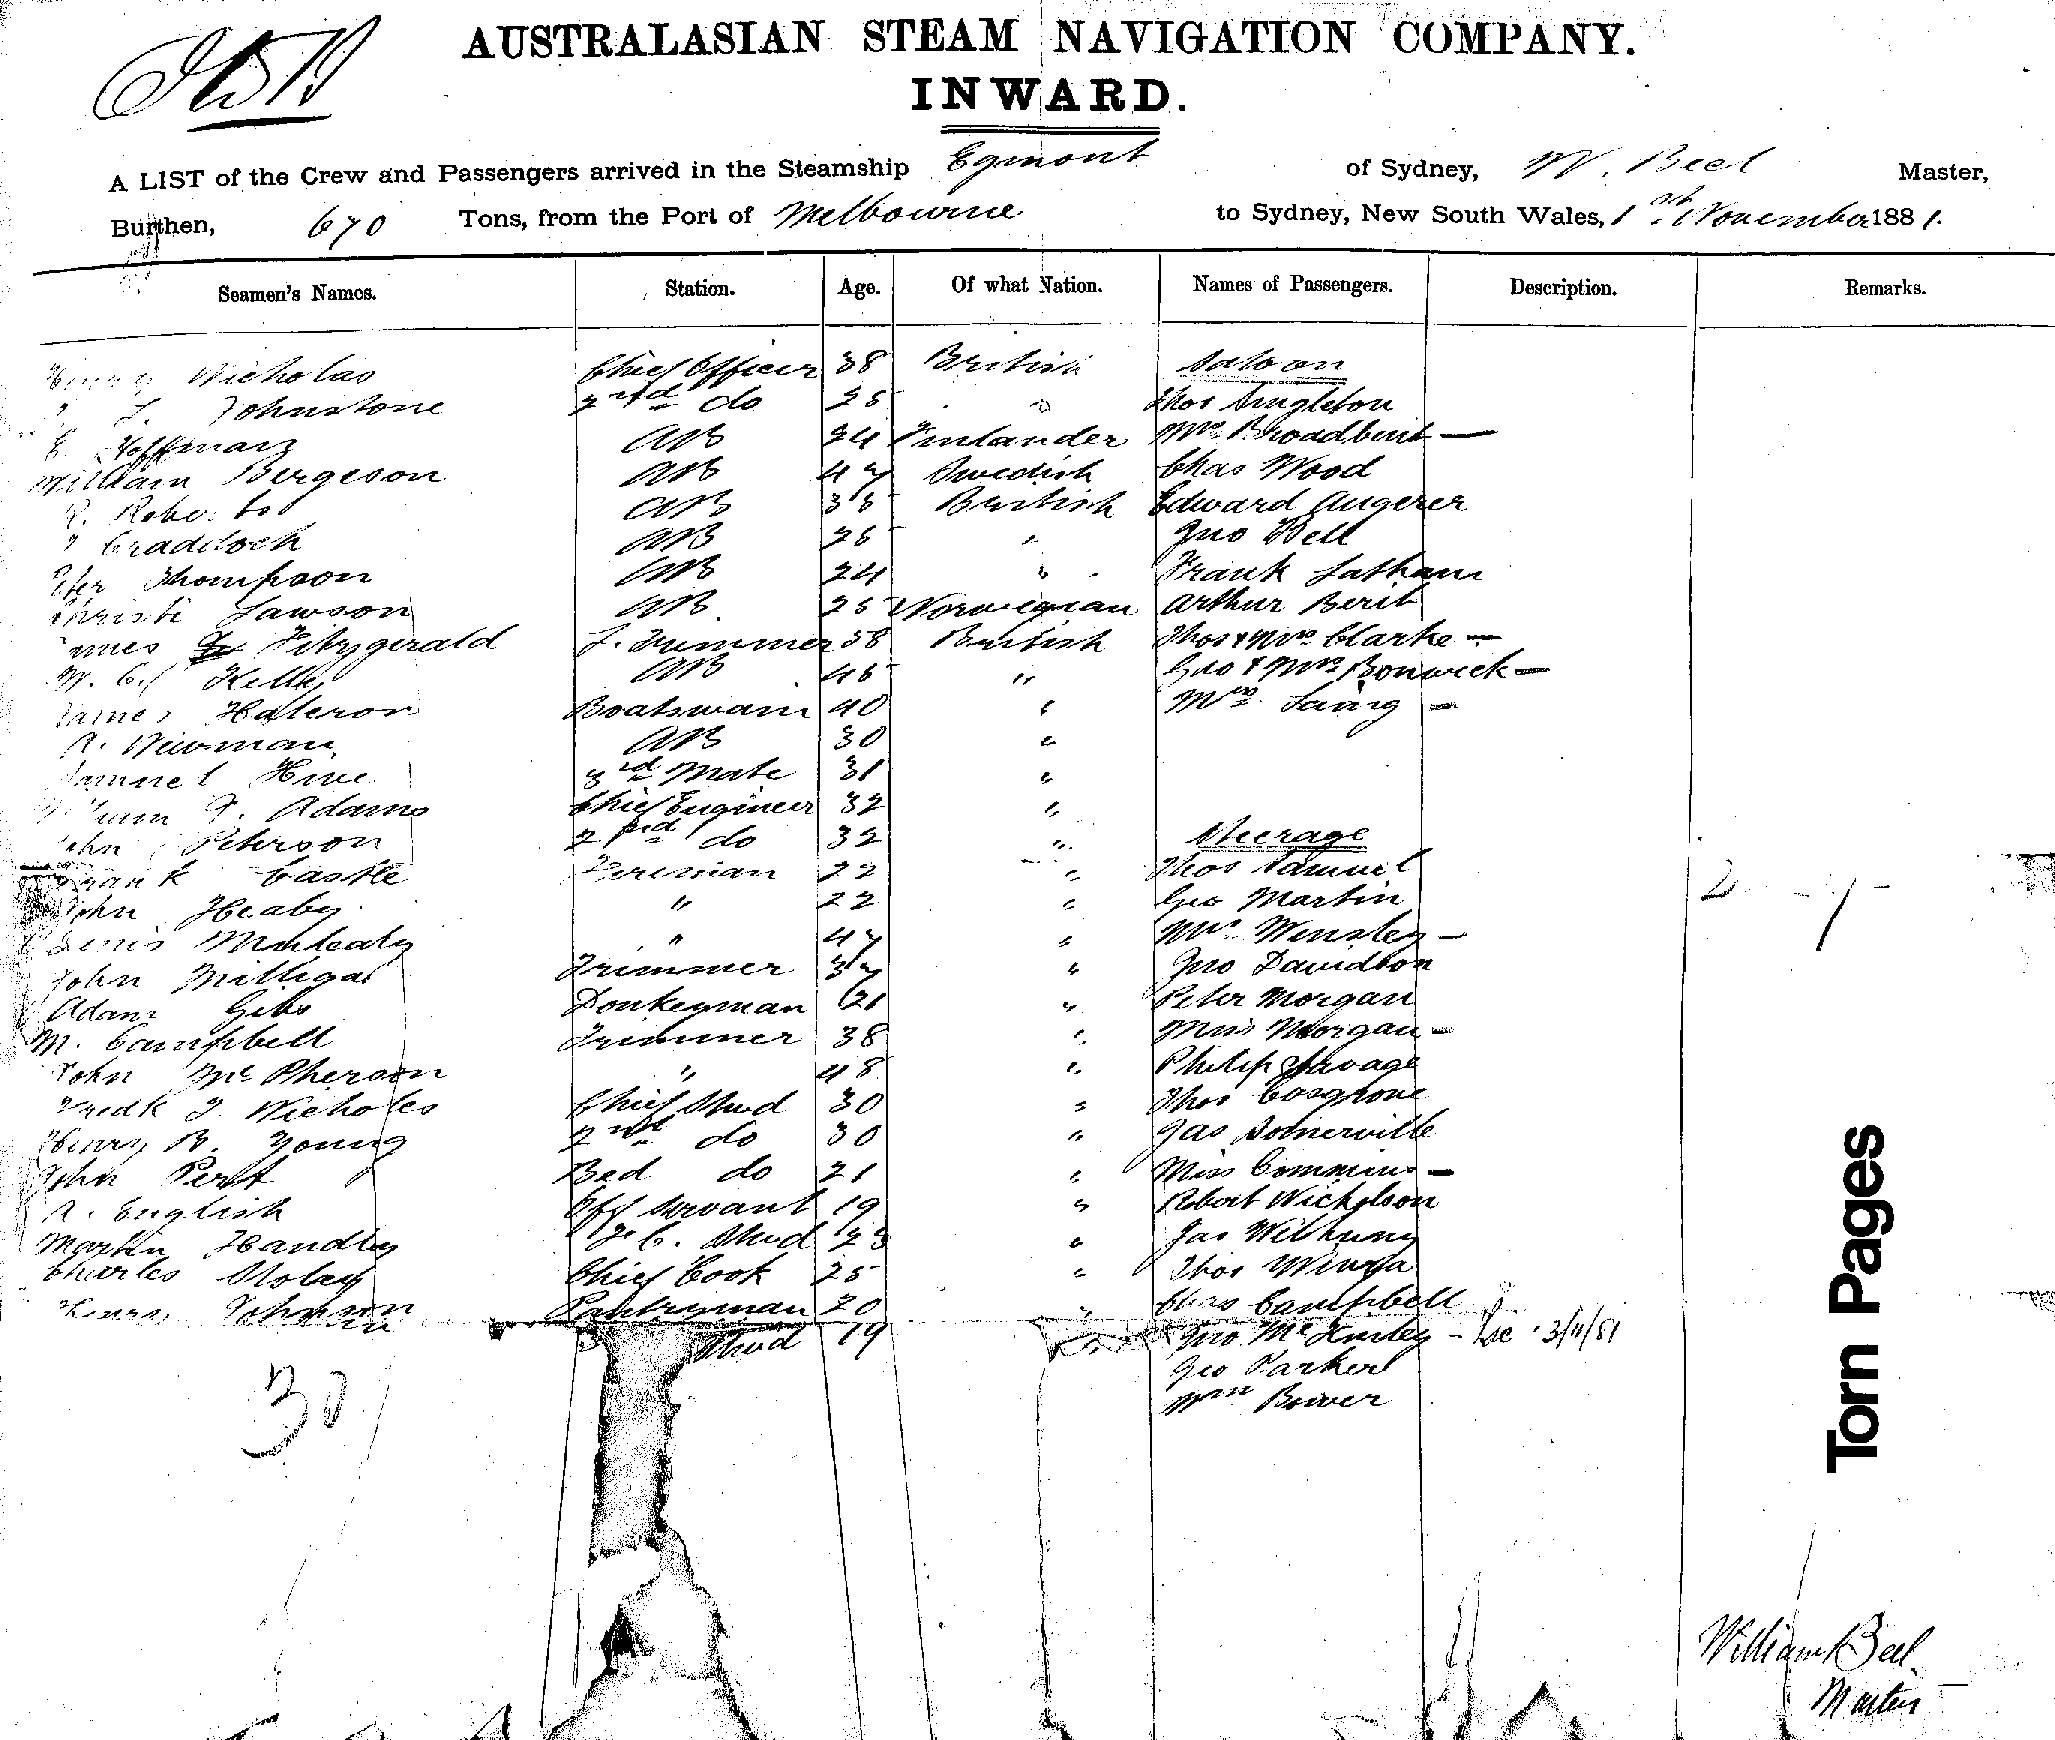 AUSTRALASIAN STEAM NAVIGATION COMPANY.
INWARD.
A LIST of the Crew and Passengers arrived in the Steamship Egmont of Sydney, W. Beel Master,
Burthen, 670 Tons, from the Port of Melbourne to Sydney, New South Wales, 1st November 1881.
Seamen's Names. Station. Age. Of what Nation. Names of Passengers. Description. Remarks.
Henry Nicholas Chief Officer 38 British Saloon
Johnstone 2nd do 25 " Thos Singleton
Hoffman AB 24 Finlander Mrs Broadbent —
William Bergeson AB 47 Swedish Chas Wood
AB 35 British Edward Augerer
Craddock AB 25 " Jno Bell
Thompson AB 24 " Frank Latham
Christi Lawson AB 25 Norwegian Arthur Berit
James Fitzgerald F. Trimmer 38 British Thos & Mrs Clarke —
Kelly AB 45 " Geo & Mrs Bonwick —
James Halcron Boatswain 40 " Mrs Laing —
Newman AB 30 "
Samuel Hine 3rd Mate 31 "
Adams Chief Engineer 32 "
John Peterson 2nd do 32 " Steerage
Frank Castle Fireman 22 " Thos Samuel
John Heaby " 22 " Geo Martin
Denis Mulcahy " 47 " Mrs Wensley —
John Milligal Trimmer 37 " Jno Davidson
Adam Gibs Donkeyman 21 " Peter Morgan
M. Campbell Trimmer 38 " Miss Morgan —
John McPherson " 48 " Philip Savage
Fredk J. Nicholes Chief Stwd 30 " Thos Cosgrove
Henry B. Young 2nd do 30 " Jas Somerville
John Pert Bed do 21 " Miss Commins —
A. English Off Servant 19 " Robert Nicholson
Martin Handly F. C. Stwd 23 " Jas
Charles Chief Cook 25 " Thos
Johnson Pantryman 20 " Chas Campbell
Stwd 19 Jno — Dec 3/11/81
Geo Parker
Wm Bower
30
Torn Pages
William Beel
Master